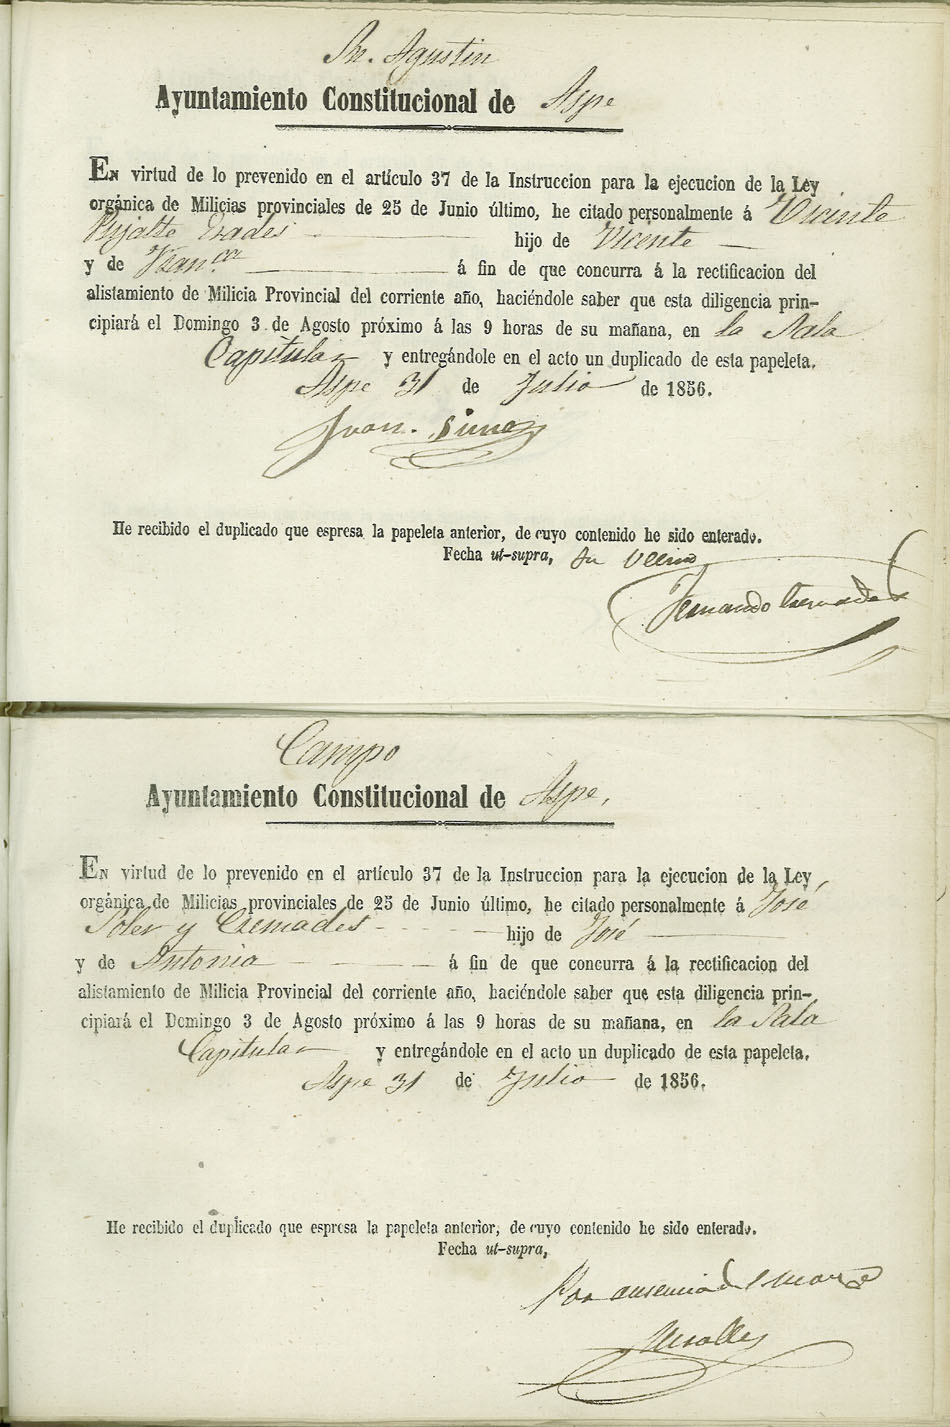 Sn. Agustin
Ayuntamiento Constitucional de Aspe
En virtud de lo prevenido en el artículo 37 de la Instruccion para la ejecucion de la Ley
orgánica de Milicias provinciales de 25 de Junio último, he citado personalmente á Vicente
hijo de Vicente
y de Fran.ca á fin de que concurra á la rectificacion del
alistamiento de Milicia Provincial del corriente año, haciéndole saber que esta diligencia prin-
cipiará el Domingo 3 de Agosto próximo á las 9 horas de su mañana, en la Sala
Capitular y entregándole en el acto un duplicado de esta papeleta.
Aspe 31 de Julio de 1856.
Juan
He recibido el duplicado que espresa la papeleta anterior, de cuyo contenido he sido enterado.
Fecha ut-supra, Su Vecino
Fernando Cremades
Campo
Ayuntamiento Constitucional de Aspe,
En virtud de lo prevenido en el artículo 37 de la Instruccion para la ejecucion de la Ley
orgánica de Milicias provinciales de 25 de Junio último, he citado personalmente á José
Soler y Cremades hijo de José
y de Antonia á fin de que concurra á la rectificacion del
alistamiento de Milicia Provincial del corriente año, haciéndole saber que esta diligencia prin-
cipiará el Domingo 3 de Agosto próximo á las 9 horas de su mañana, en la Sala
Capitular y entregándole en el acto un duplicado de esta papeleta.
Aspe 31 de Julio de 1856.
He recibido el duplicado que espresa la papeleta anterior, de cuyo contenido he sido enterado.
Fecha ut-supra,
Por ausencia del
Miralles